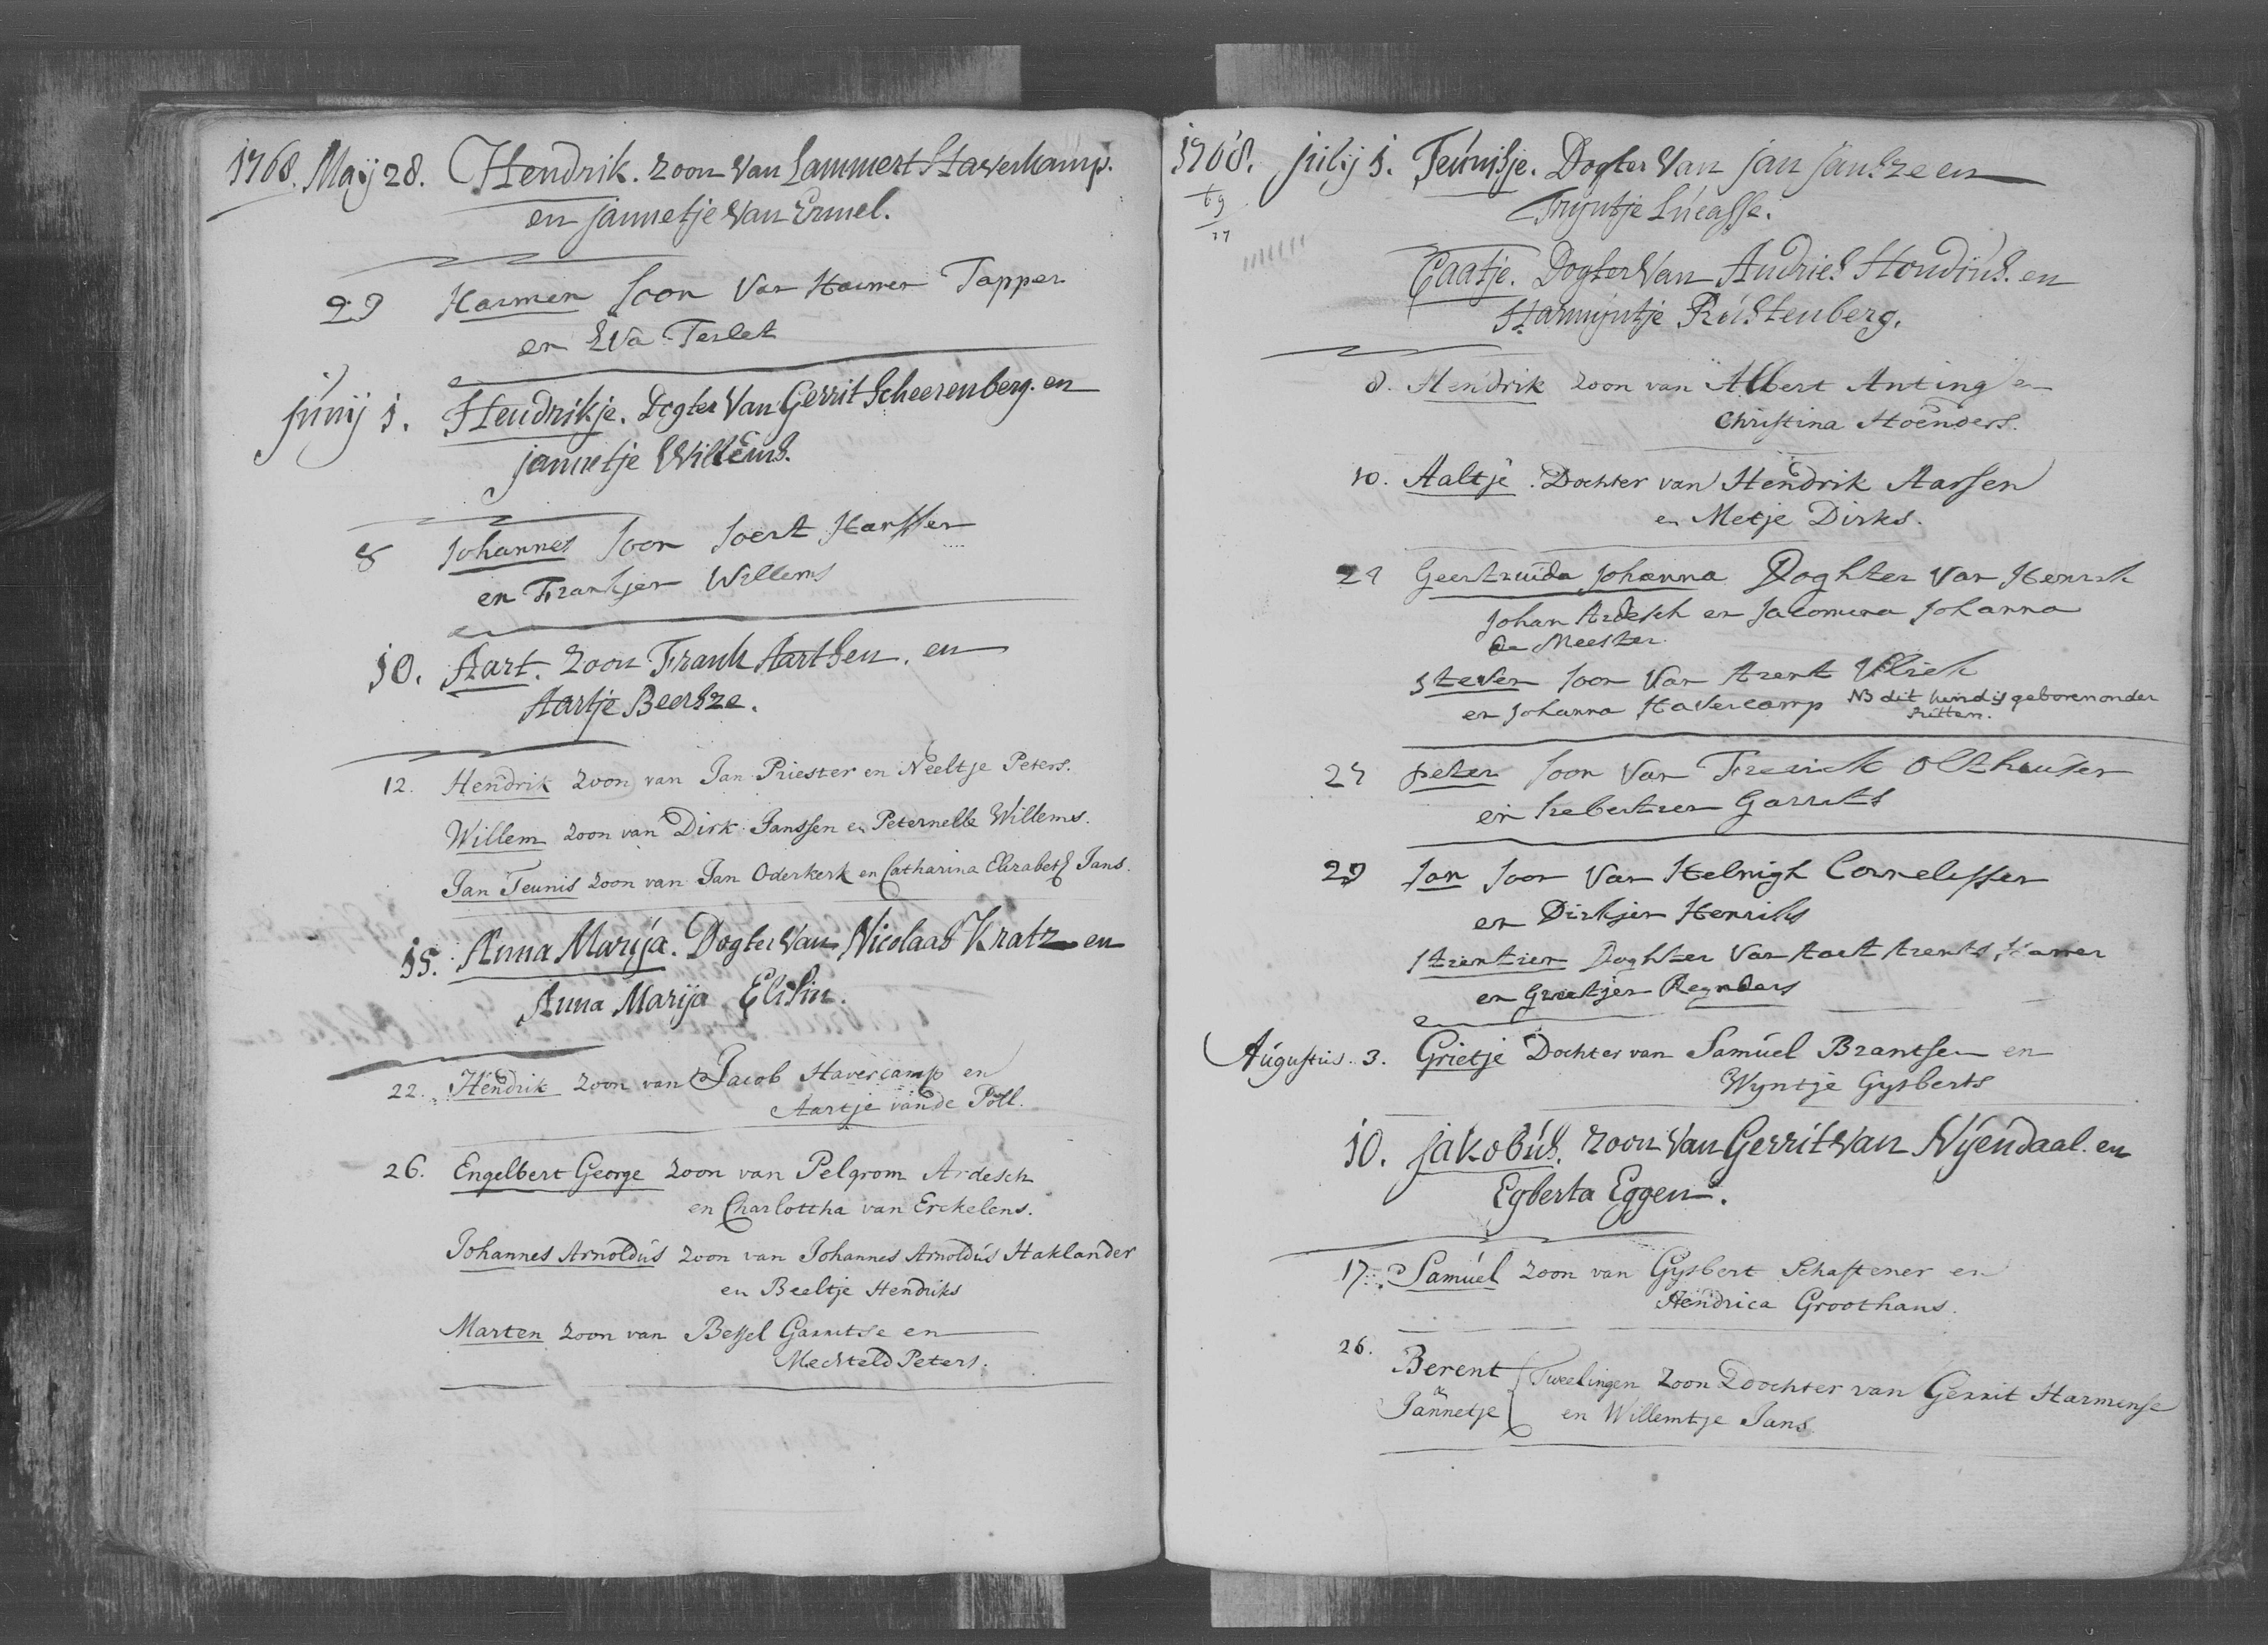 1768. Maij 28. Hendrik. zoon van Lammert Haverkamp.
en jannetje van Ermel.
29 Harmen soon van Harmen Tapper
en Eva Terlet
junij 1. Hendrikje. Dogter van Gerrit Scheerenberg. en
jannetje Willems.
8 Johannes soon soert Harssen
en Frankjen Willems
10. Aart. zoon Frank Aartsen. en
Aartje Beersze.
12. Hendrik zoon van Jan Priester en Neeltje Peters.
Willem zoon van Dirk Janssen en Peternelle Willems.
Jan Teunis zoon van Jan Oderkerk en Catharina Elizabeth Jans.
15. Anna Marija. Dogter van Nicolaas Kratz en
Anna Marija Elisin.
22. Hendrik zoon van Jacob Havercamp en
Aartje vande Poll.
26. Engelbert George zoon van Pelgrom Ardesch
en Charlottha van Erckelens.
Johannes Arnoldus zoon van Johannes Arnoldus Haklander
en Beeltje Hendriks
Marten zoon van Bessel Garritse en
Mechteld Peters.
1768. julij 1. Teunisje. Dogter van jan jansze en
69
77
Trijntje Lucasse.
Caatje. Dogter van Andries Hondius. en
Harmijntje Rustenberg.
8. Hendrik zoon van Albert Anting en
Christina Hoenders.
10. Aaltje. Dochter van Hendrik Aarsen
en Metje Dirks.
24 Geertruida Johanna Doghter van Henrik
Johan Ardesch en Jacomina Johanna
de Meester
Steven soon van Arent Ulrich
en Johanna Havercamp NB dit kind is geboren onder
Putten.
27 peter soon van Fredrick Olthuisen
en Garrits
29 Jan soon van Helmigh Cornelissen
en Dirkjen Henriks
Doghter van Aart Arents
en Grietjen Reynders
Augustus. 3. Grietje Dochter van Samuel Brantsen en
Wyntje Gysberts
10. jakobus. zoon van Gerrit van Nijendaal. en
Egberta Eggen.
17. Samuel zoon van Gysbert Schaftener en
Hendrica Groothans.
26.
Berent Tweelingen zoon Dochter van Gerrit Harmense
Jannetje en Willemtje Jans